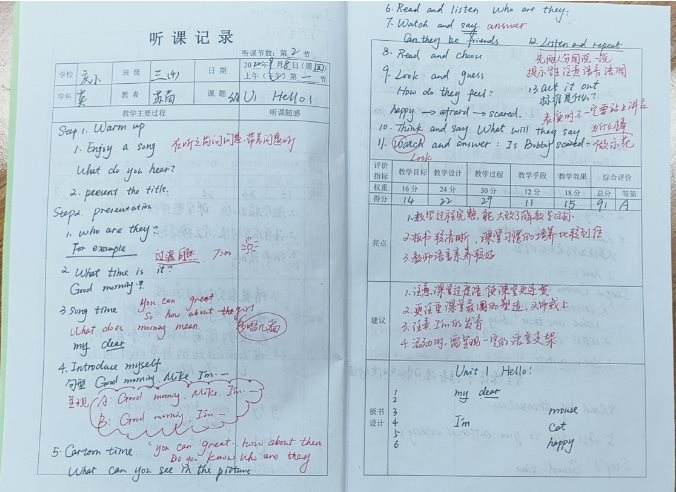 听课记录
听课节数：第 2 节
学校 班级 三(4) 日期
学科 英 教者 课题 U1 Hello!
教学主要过程 听课随感
Step 1. Warm up
1. Enjoy a song 在听之前问问题，带着问题听
What do you hear?
2. present the title.
Step2. presentation
1. who are they?
For example 过渡 7:00
2. What time is it?
Good morning!
3 Song time you can great
So how about the girl
What does morning mean 多唱几遍
my dear
4. Introduce myself
句型 Good morning, Mike. I'm —
呈现 A: Good morning, Mike. I'm —
B: Good morning, I'm —
5. Cartoon time. you can great. how about them
Do you know who are they
What can you see in the picture
6. Read and listen Who are they?
7. Watch and say answer
Can they be friends 12. Listen and repeat
8. Read and choose
9. Look and guess 提示学生注意语音语调
How do they feel? 13. act it out
标准是什么?
happy → afraid → scared. 表演时不一定要站上讲台
10. Think and say What will they say
11. Watch and answer: Is Bobby scared? 做示范
Look
评价指标 教学目标 教学设计 教学过程 教学手段 教学效果 综合评价
权重 16分 24分 30分 12分 18分 总分 等第
得分 14 22 29 11 15 91 A
亮点
1.教学过程完整，能大致了解教学目标
2.板书较清晰，课堂习惯的培养比较到位
3.教师语音素养较好
建议
1.注意课堂过渡语，使课堂更连贯
2.更注重课堂氛围的塑造
3.注意I'm的发音
4.活动时，需呈现一定的语言支架
板书设计
Unit 1 Hello!
1 my dear
2
3 mouse
4 I'm cat
5
6 happy